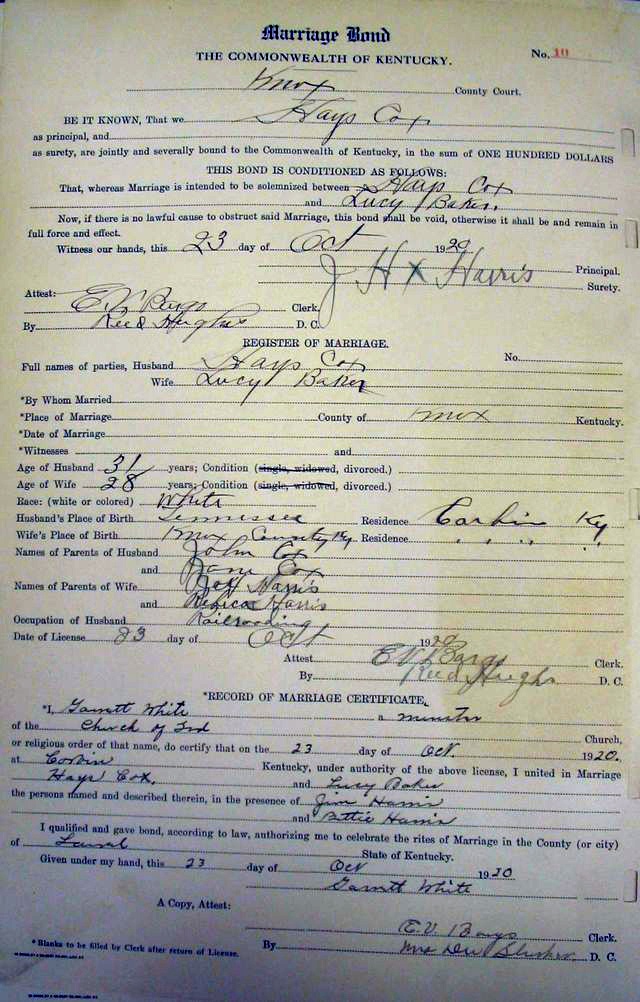 Marriage Bond
THE COMMONWEALTH OF KENTUCKY.
No. 10
Knox County Court.
BE IT KNOWN, That we Hays Cox
as principal, and
as surety, are jointly and severally bound to the Commonwealth of Kentucky, in the sum of ONE HUNDRED DOLLARS
THIS BOND IS CONDITIONED AS FOLLOWS:
That, whereas Marriage is intended to be solemnized between Hays Cox
and Lucy Baker.
Now, if there is no lawful cause to obstruct said Marriage, this bond shall be void, otherwise it shall be and remain in
full force and effect.
Witness our hands, this 23 day of Oct 1920
Principal.
J H x Harris Surety.
Attest:
E. V. Clerk.
By Reed Hughes D. C.
REGISTER OF MARRIAGE.
No.
Full names of parties, Husband Hays Cox
Wife Lucy Baker
*By Whom Married
*Place of Marriage County of Knox Kentucky.
*Date of Marriage
*Witnesses and
Age of Husband 31 years; Condition (single, widowed, divorced.)
Age of Wife 28 years; Condition (single, widowed, divorced.)
Race: (white or colored) White
Husband's Place of Birth Tennessee Residence Corbin Ky
Wife's Place of Birth Knox County Ky Residence " " " "
Names of Parents of Husband John Cox
and Jane Cox
Names of Parents of Wife Harris
and Harris
Occupation of Husband Railroading
Date of License 23 day of Oct 1920
Attest E. V. Clerk.
By Reed Hughes D. C.
*RECORD OF MARRIAGE CERTIFICATE.
*I, Garrett White a minister
of the Church of God Church,
or religious order of that name, do certify that on the 23 day of Oct. 1920.
at Corbin Kentucky, under authority of the above license, I united in Marriage
Hays Cox. and Lucy Baker
the persons named and described therein, in the presence of Jim Harris
and Harris
I qualified and gave bond, according to law, authorizing me to celebrate the rites of Marriage in the County (or city)
of Laurel State of Kentucky.
Given under my hand, this 23 day of Oct 1920
Garrett White
A Copy, Attest:
E. V. Clerk.
*Blanks to be filled by Clerk after return of License.
By Mrs D. C.